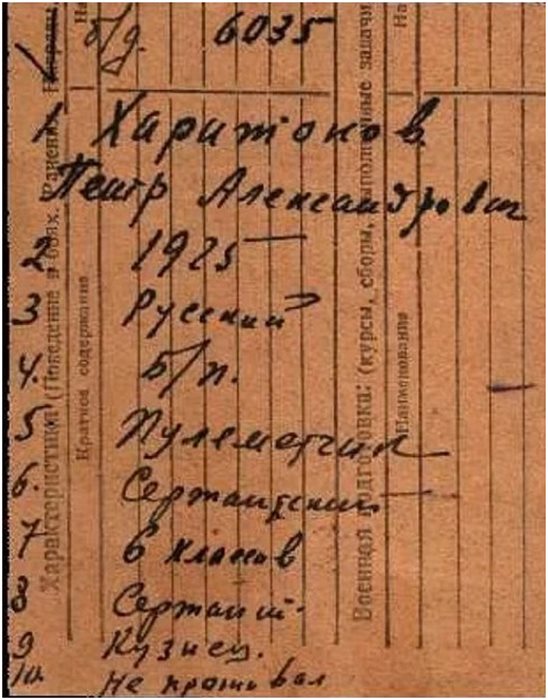 б/д. 6035
1 Харитонов
Петр Александрович
2 1925
3 Русский
4. Б/п.
5 Пулеметчик
6. Сержантский
7 6 классов
8 Сержант.
9 Кузнец.
10. Не проживал
Характеристика: (Поведение в боях.
Краткое содержание
Военная подготовка: (курсы, сборы, выполненные задачи
Наименование